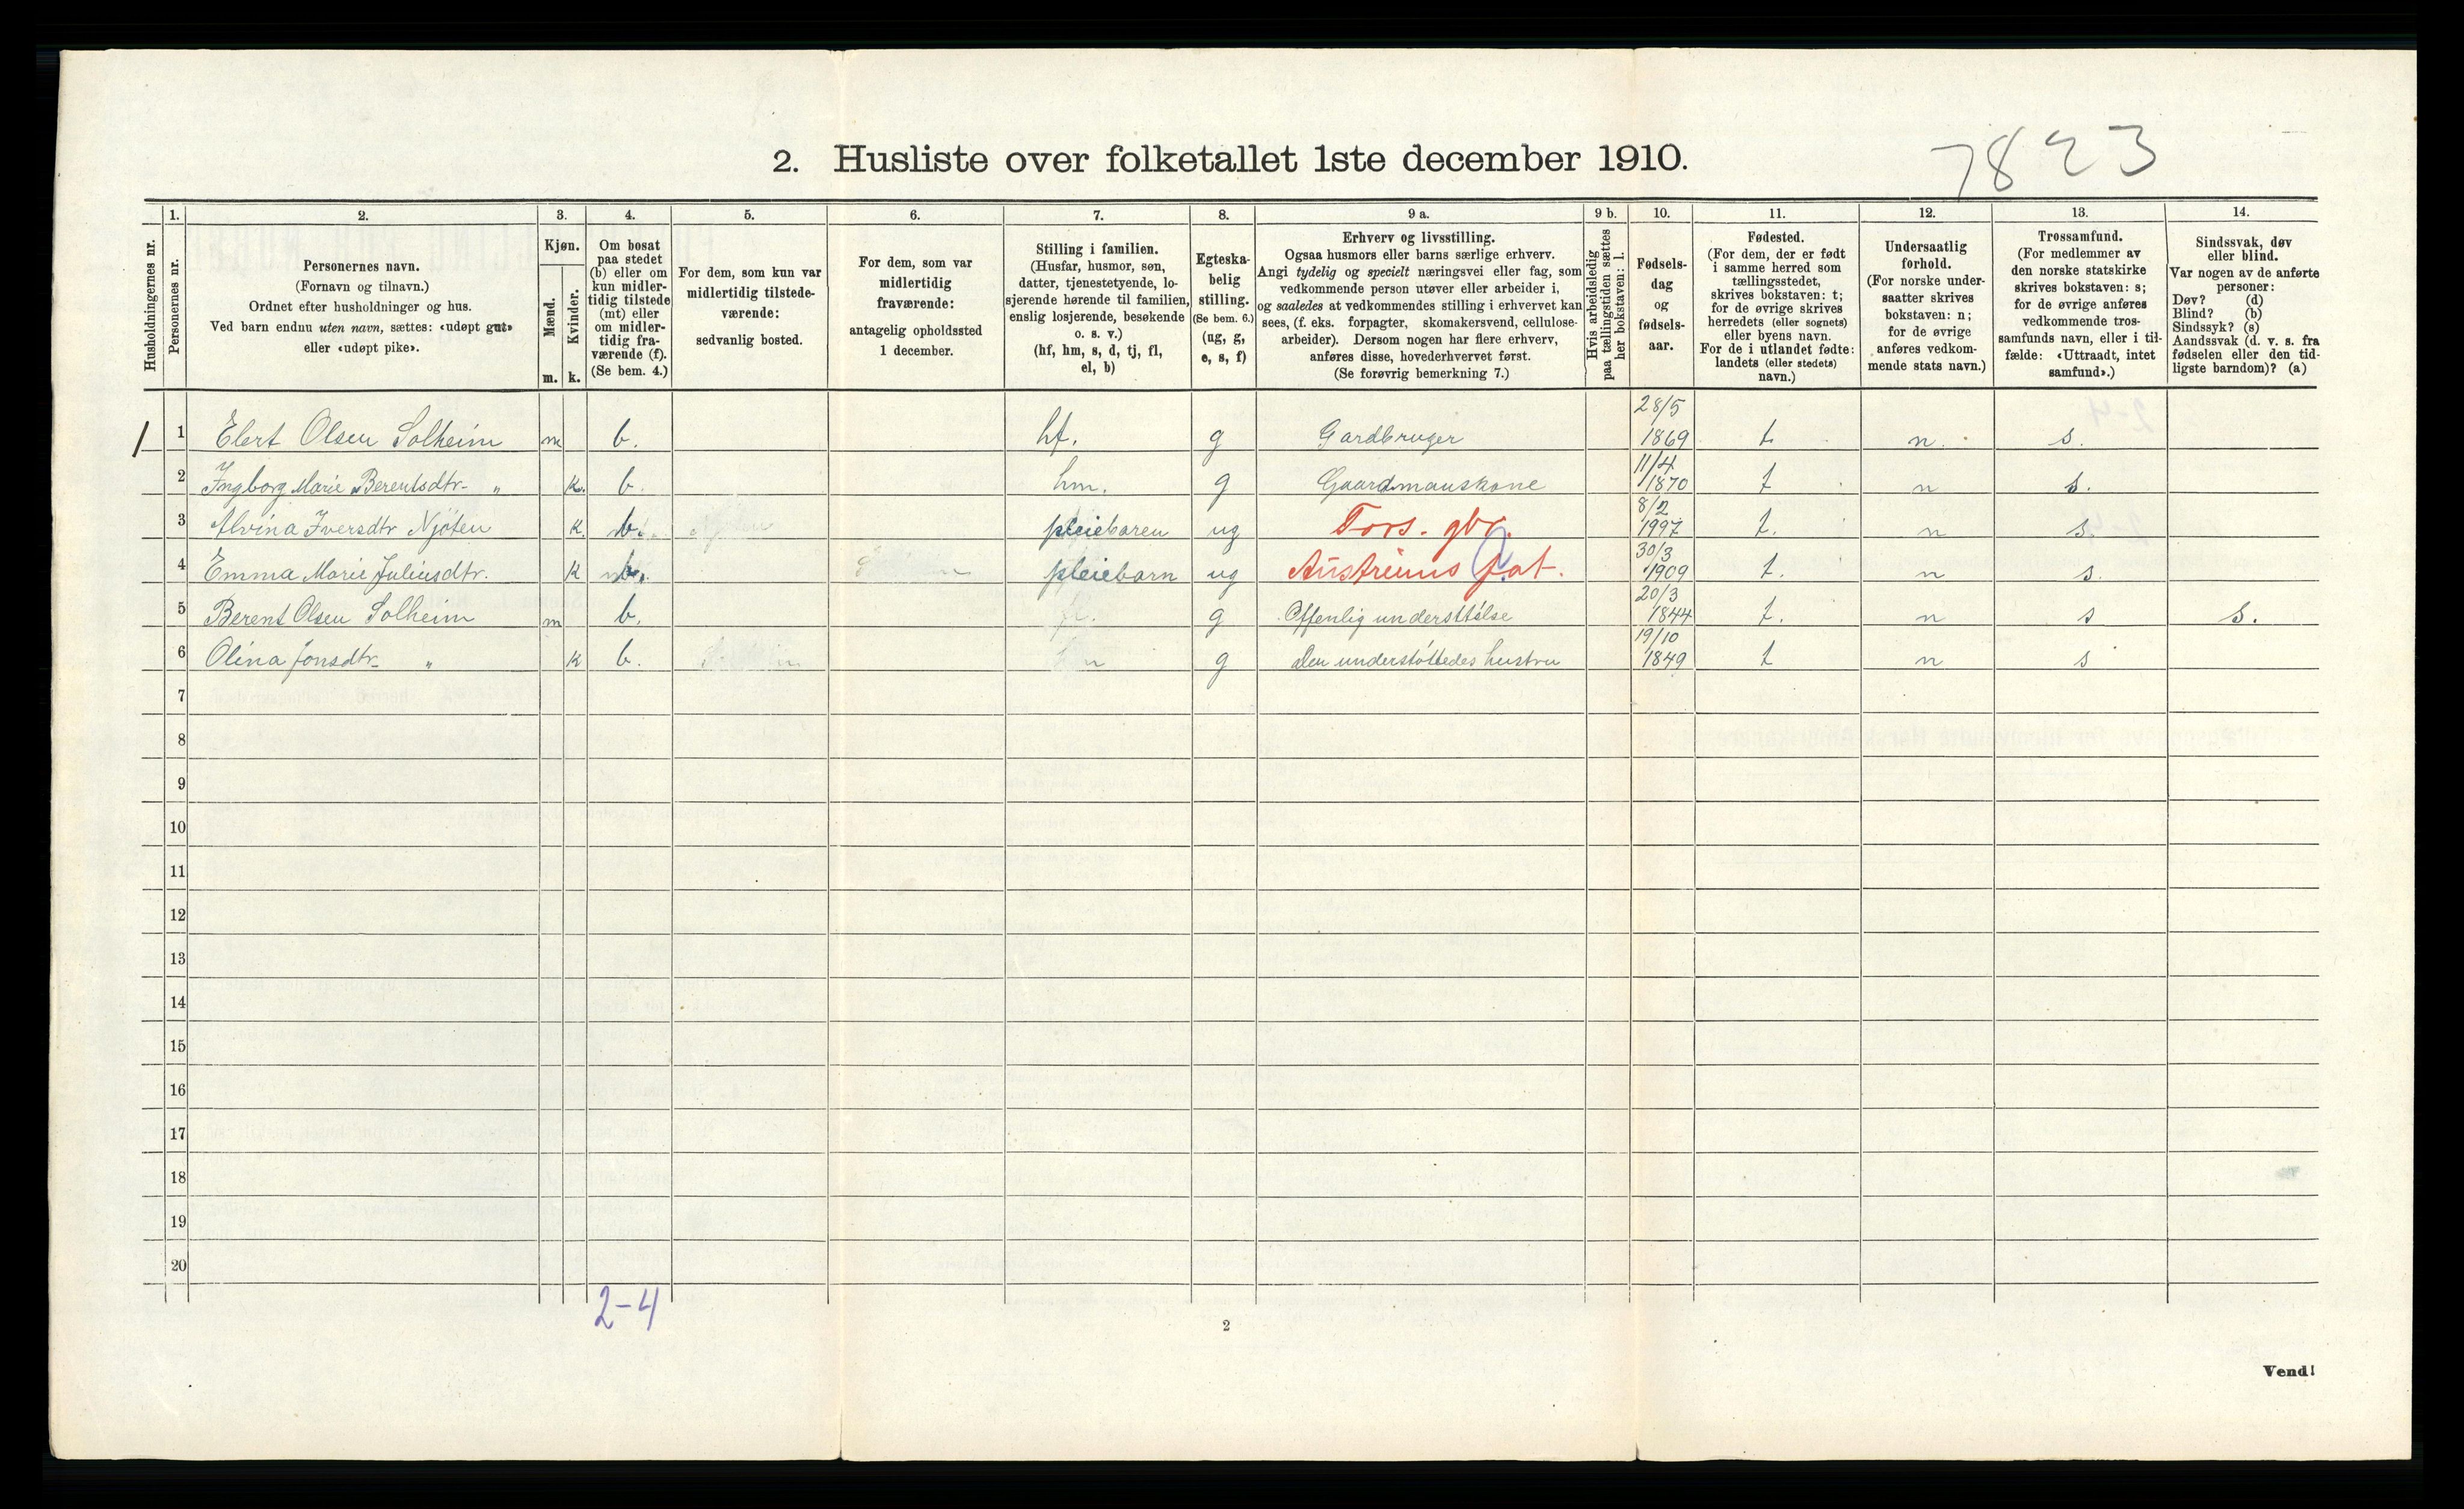 7823
2. Husliste over folketallet 1ste december 1910.
Husholdningernes nr.
1. Personernes nr.
2. Personernes navn.
(Fornavn og tilnavn.)
Ordnet efter husholdninger og hus.
Ved barn endnu uten navn, sættes: «udøpt gut»
eller «udøpt pike».
3. Kjøn.
Mænd. m.
Kvinder. k.
4. Om bosat
paa stedet
(b) eller om
kun midler-
tidig tilstede
(mt) eller
om midler-
tidig fra-
værende (f).
(Se bem. 4.)
5. For dem, som kun var
midlertidig tilstede-
værende:
sedvanlig bosted.
6. For dem, som var
midlertidig
fraværende:
antagelig opholdssted
1 december.
7. Stilling i familien.
(Husfar, husmor, søn,
datter, tjenestetyende, lo-
sjerende hørende til familien,
enslig losjerende, besøkende
o. s. v.)
(hf, hm, s, d, tj, fl,
el, b)
8. Egteska-
belig
stilling.
(Se bem. 6.)
(ug, g,
e, s, f)
9 a. Erhverv og livsstilling.
Ogsaa husmors eller barns særlige erhverv.
Angi tydelig og specielt næringsvei eller fag, som
vedkommende person utøver eller arbeider i,
og saaledes at vedkommendes stilling i erhvervet kan
sees, (f. eks. forpagter, skomakersvend, cellulose-
arbeider). Dersom nogen har flere erhverv,
anføres disse, hovederhvervet først.
(Se forøvrig bemerkning 7.)
9 b. Hvis arbeidsledig
paa tællingstiden sættes
her bokstaven: l.
10. Fødsels-
dag
og
fødsels-
aar.
11. Fødested.
(For dem, der er født
i samme herred som
tællingsstedet,
skrives bokstaven: t;
for de øvrige skrives
herredets (eller sognets)
eller byens navn.
For de i utlandet fødte:
landets (eller stedets)
navn.)
12. Undersaatlig
forhold.
(For norske under-
saatter skrives
bokstaven: n;
for de øvrige
anføres vedkom-
mende stats navn.)
13. Trossamfund.
(For medlemmer av
den norske statskirke
skrives bokstaven: s;
for de øvrige anføres
vedkommende tros-
samfunds navn, eller i til-
fælde: «Uttraadt, intet
samfund».)
14. Sindssvak, døv
eller blind.
Var nogen av de anførte
personer:
Døv? (d)
Blind? (b)
Sindssyk? (s)
Aandssvak (d. v. s. fra
fødselen eller den tid-
ligste barndom)? (a)
1 1 Elert Olsen Solheim m b. hf. g Gardbruger 28/5 1869 t. n. s.
2 Ingborg Marie Berentsdtr- „ k. b. hm. g Gaardmanskone 11/4 1870 t n s.
3 Alvina Iversdtr Njöten k. b. pleiebaren ug Fors. gbr. 8/2 1997 t. n s.
4 Emma Marie Juliusdtr. k b. pleiebarn ug fat. 30/3 1909 t. n s.
5 Berent Olsen Solheim m b. g Offenlig understtölse 20/3 1844 t. n s s.
6 Olina Jonsdtr- „ k b. g Den understöttedes hustru 19/10 1849 t n s
7
8
9
10
11
12
13
14
15
16
17
18
19
20
2-4
2
Vend!